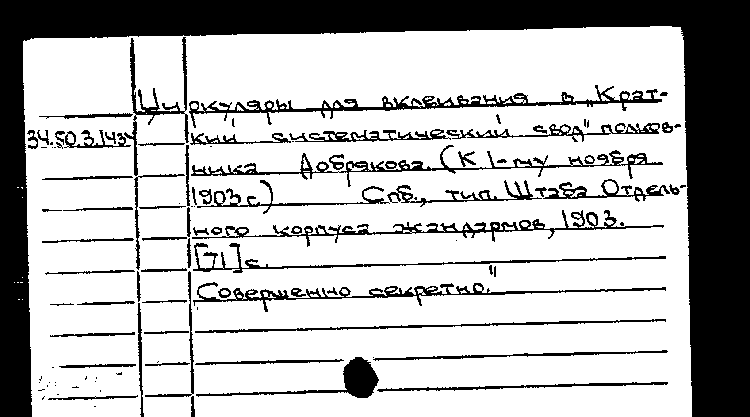 Циркуляры для вклеивания в „Крат-
34.50.3.1434 кий систематический свод" полков-
ника Добрякова. (К 1-му ноября
1903 г.) Спб., тип. Штаба Отдель-
ного корпуса жандармов, 1903.
[71] с.
Совершенно секретно."